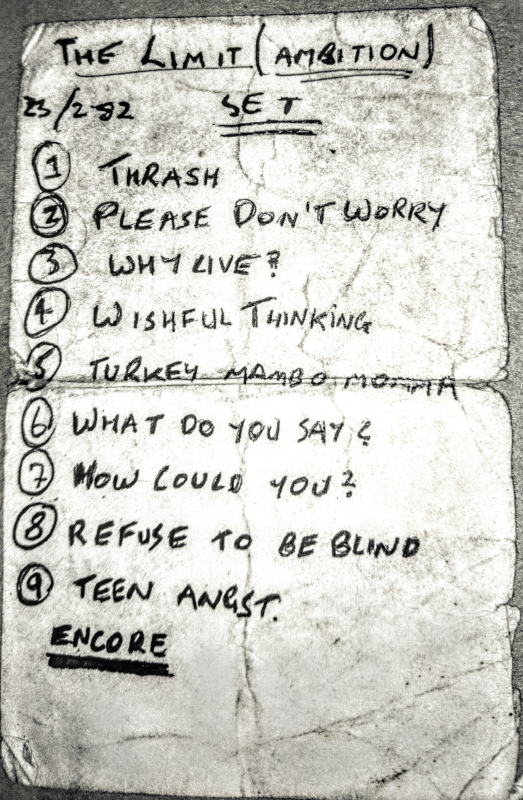 THE LIMIT (AMBITION)
23/2-82 SET
1 THRASH
2 PLEASE DON'T WORRY
3 WHY LIVE?
4 WISHFUL THINKING
5 TURKEY MAMBO MOMMA
6 WHAT DO YOU SAY?
7 HOW COULD YOU?
8 REFUSE TO BE BLIND
9 TEEN ANGST.
ENCORE